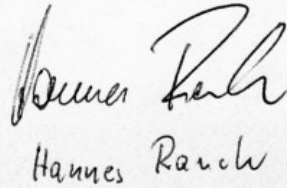 Hannes Rauch
Hannes Rauch